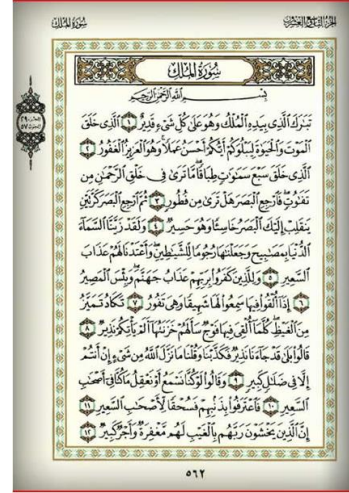 الجزء التاسع والعشرون
سورة الملك
سورة الملك
بسم الله الرحمن الرحيم
تبرك الذي بيده الملك وهو على كل شيء قدير ١ الذي خلق
الموت والحيوة ليبلوكم أيكم أحسن عملا وهو العزيز الغفور ٢
الذي خلق سبع سموت طباقا ما ترى في خلق الرحمن من
تفوت فارجع البصر هل ترى من فطور ٣ ثم ارجع البصر كرتين
ينقلب إليك البصر خاسئا وهو حسير ٤ ولقد زينا السماء
الدنيا بمصبيح وجعلنها رجوما للشيطين وأعتدنا لهم عذاب
السعير ٥ وللذين كفروا بربهم عذاب جهنم وبئس المصير
٦ إذا ألقوا فيها سمعوا لها شهيقا وهي تفور ٧ تكاد تميز
من الغيظ كلما ألقي فيها فوج سألهم خزنتها ألم يأتكم نذير ٨
قالوا بلى قد جاءنا نذير فكذبنا وقلنا ما نزل الله من شيء إن أنتم
إلا في ضلل كبير ٩ وقالوا لو كنا نسمع أو نعقل ما كنا في أصحب
السعير ١٠ فاعترفوا بذنبهم فسحقا لأصحب السعير ١١
إن الذين يخشون ربهم بالغيب لهم مغفرة وأجر كبير ١٢
٥٦٢